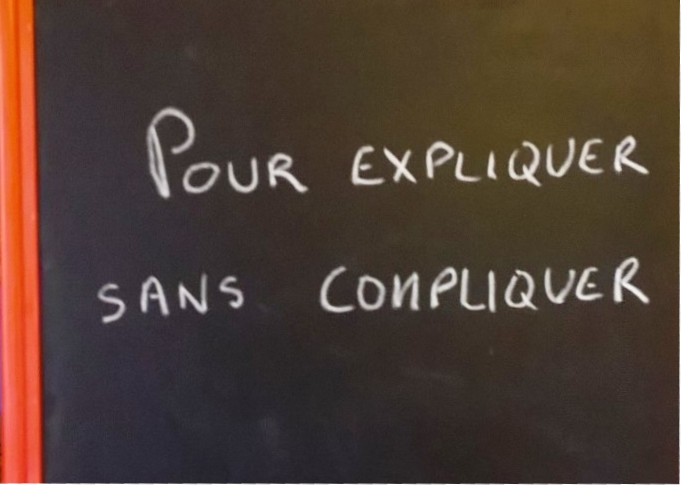 Pour expliquer
sans compliquer